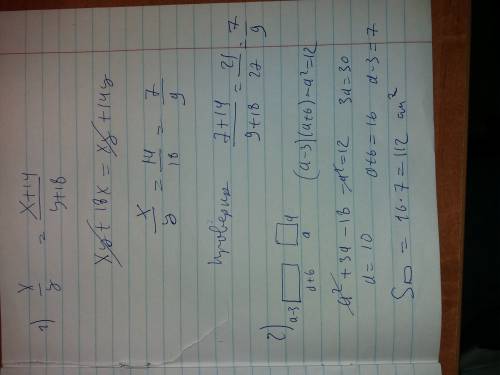 1) x/y = x+14/y+18
xy + 18x = xy + 14y
x/y = 14/18 = 7/9
проверка 7+14/9+18 = 21/27 = 7/9
2) a-3 a+6 a a (a-3)(a+6)-a²=12
a²+3a-18-a²=12 3a=30
a=10 a+6=16 a-3=7
S▭ = 16·7=112 см²